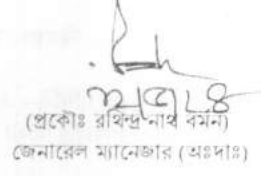 (প্রকৌঃ রথিন্দ্র নাথ বর্মন)
জেনারেল ম্যানেজার (অঃদাঃ)